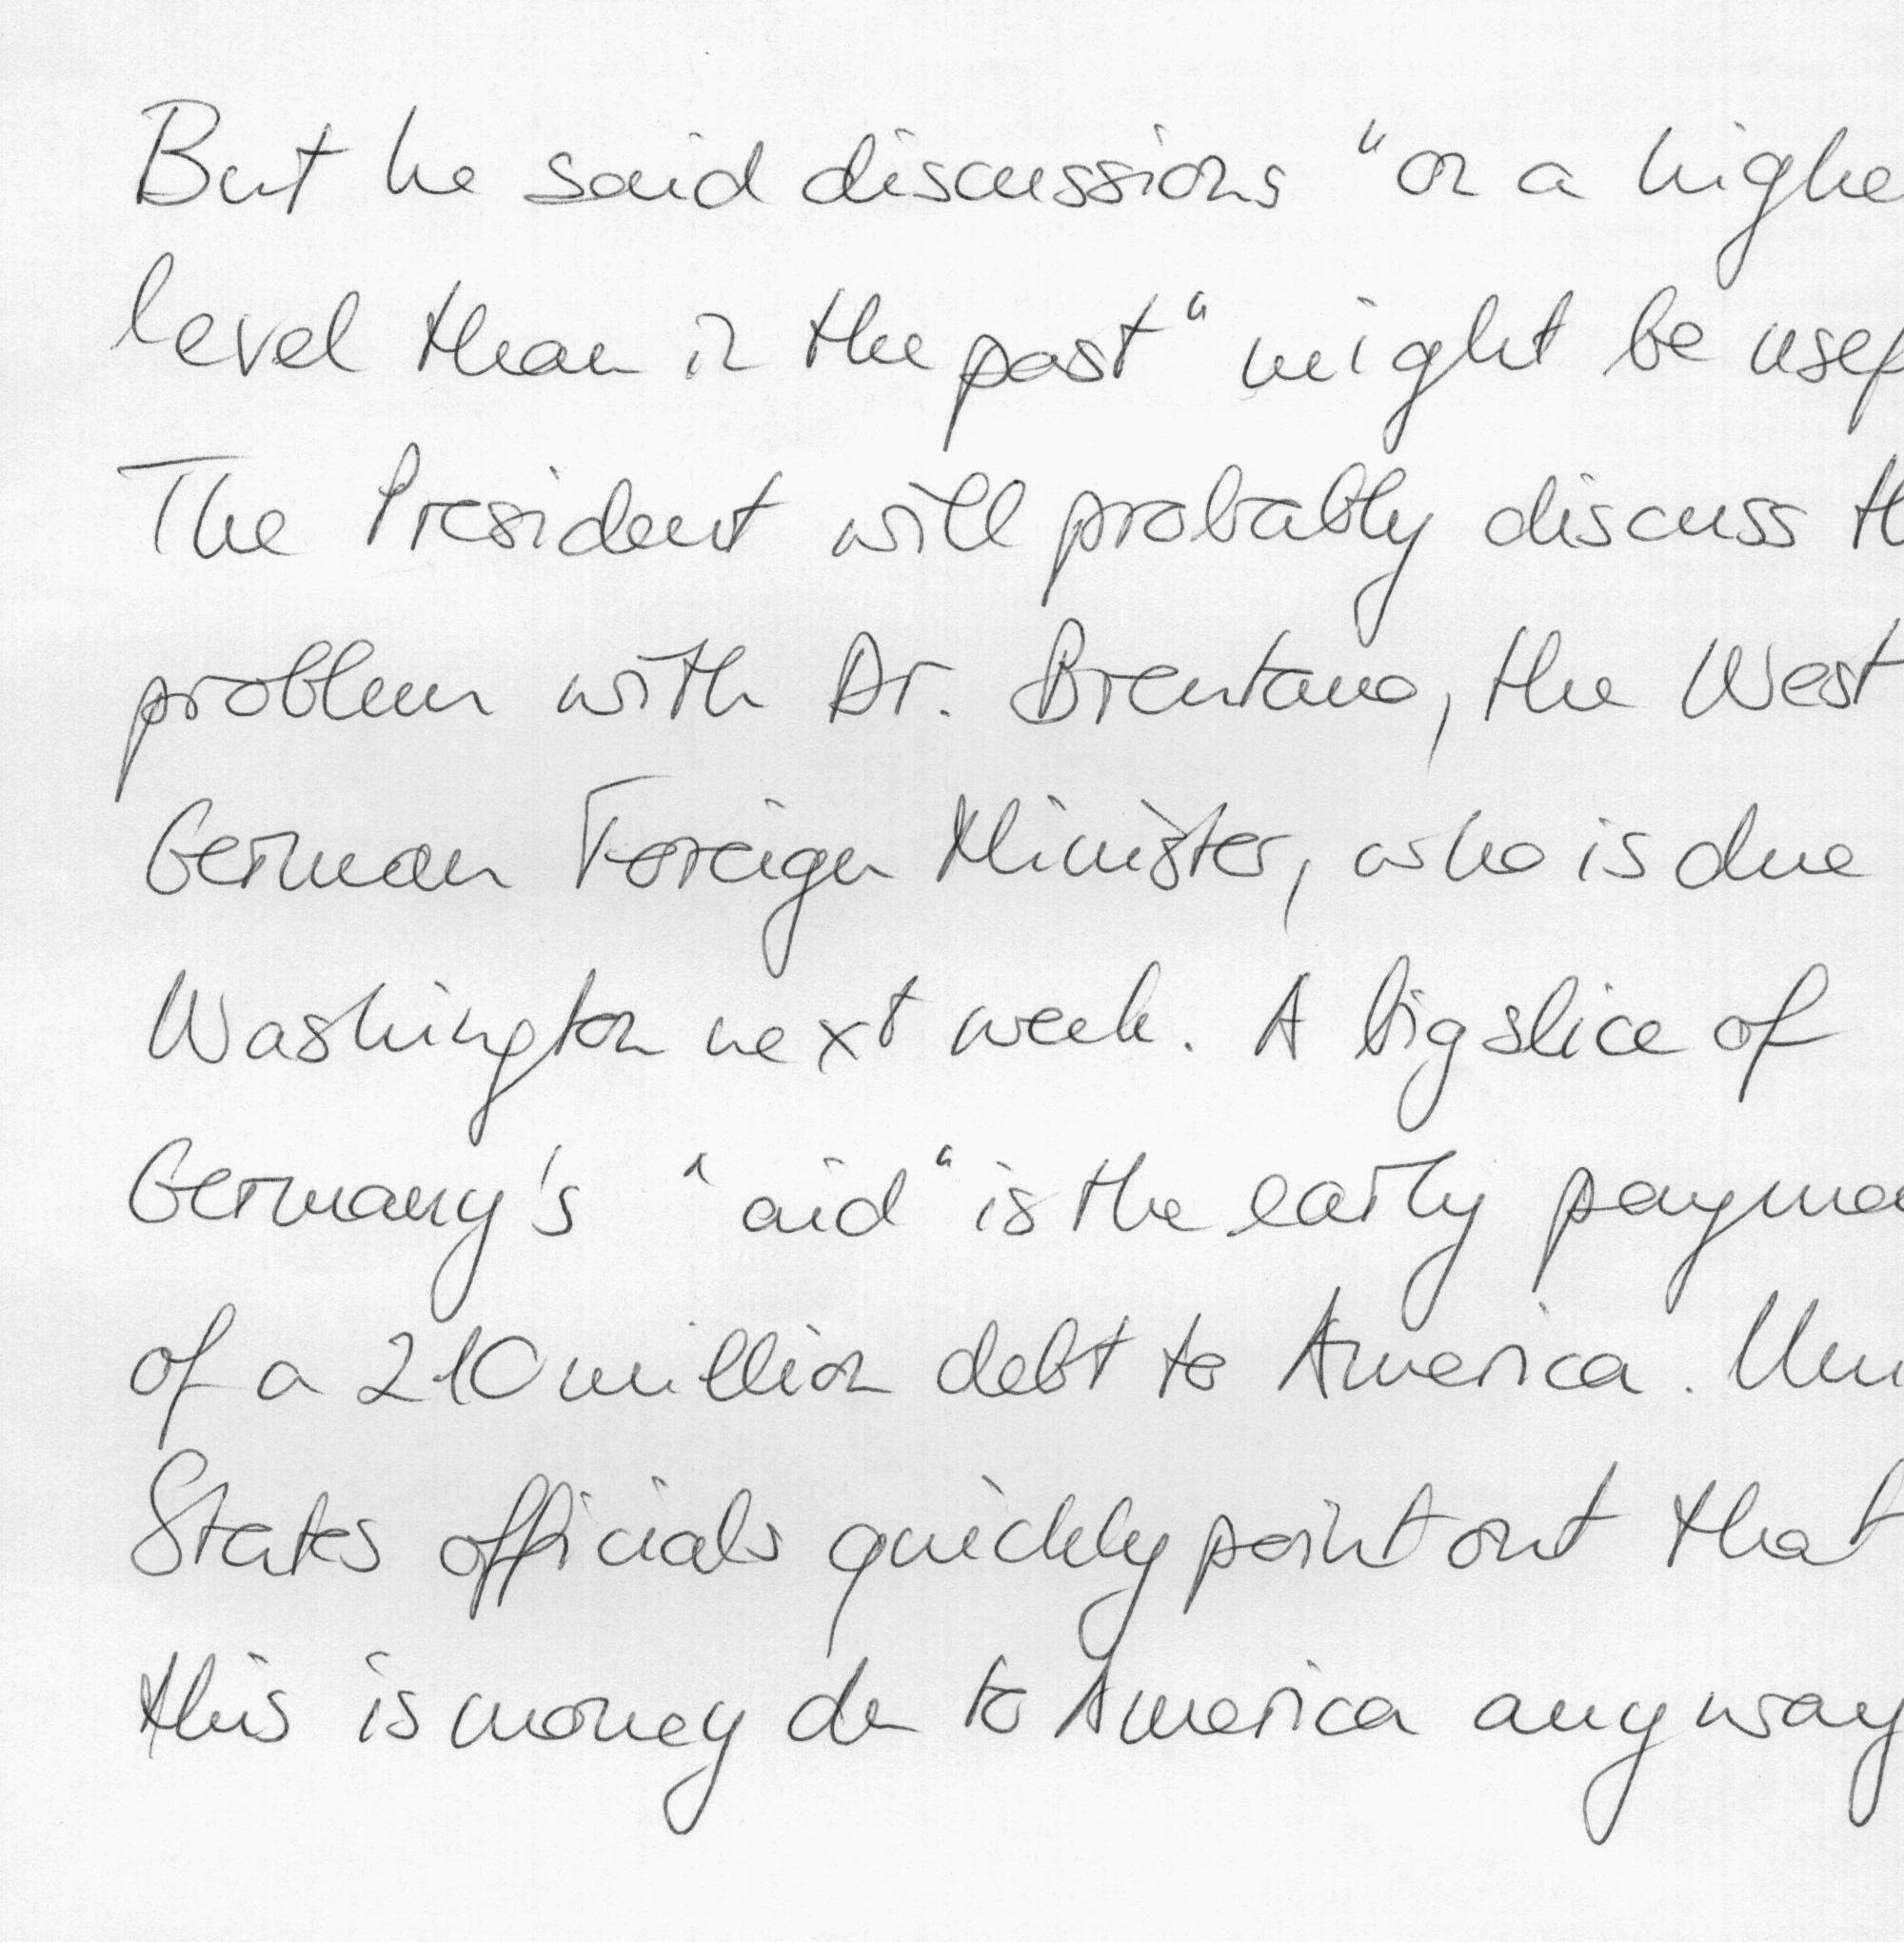 But he said discussions "on a highe
level than in the past" might be usef
The President will probably discuss th
problem with Dr. Brentano, the West
German Foreign Minister, who is due
Washington next week. A big slice of
Germany's "aid" is the early payme
of a 210 million debt to America. Uni
States officials quickly point out that
this is money du to America anyway